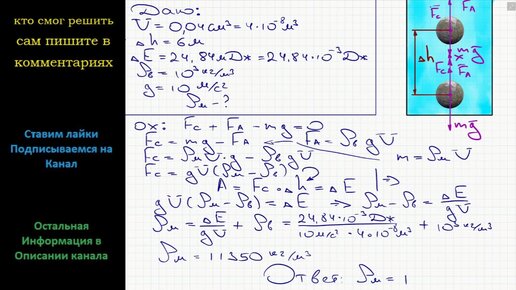 кто смог решить
сам пишите в
комментариях
Ставим лайки
Подписываемся на
Канал
Остальная
Информация в
Описании канала
Дано:
V = 0,04 см³ = 4·10⁻⁸ м³
Δh = 6 м
ΔE = 24,84 мДж = 24,84·10⁻³ Дж
ρв = 10³ кг/м³
g = 10 м/с²
ρм - ?
Fc
FA
Δh
x
mg
Fc
FA
mg
ox: Fc + FA - mg = 0
Fc = mg - FA FA = ρв g V
Fc = ρм V·g - ρв g V m = ρм V
Fc = g V (ρм - ρв)
A = Fc · Δh = ΔE
g V (ρм - ρв) = ΔE ⇒ ρм - ρв = ΔE/gV
ρм = ΔE/gV + ρв = 24,84·10⁻³ Дж/10 м/с²·4·10⁻⁸ м³ + 10³ кг/м³
ρм = 11350 кг/м³
Ответ: ρм = 1